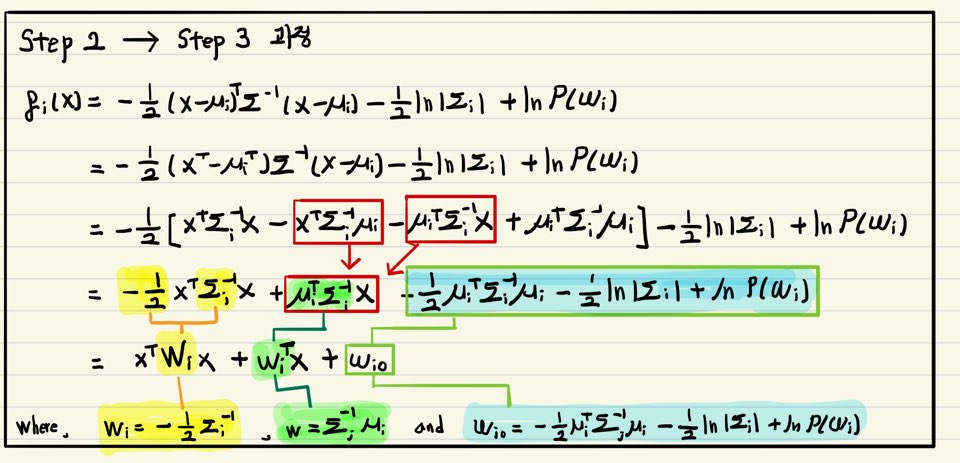 Step 2 → Step 3 과정
gᵢ(x) = -½(x-μᵢ)ᵀΣ⁻¹(x-μᵢ) - ½ln|Σᵢ| + ln P(wᵢ)
= -½(xᵀ-μᵢᵀ)Σ⁻¹(x-μᵢ) - ½ln|Σᵢ| + ln P(wᵢ)
= -½[xᵀΣᵢ⁻¹x - xᵀΣᵢ⁻¹μᵢ - μᵢᵀΣᵢ⁻¹x + μᵢᵀΣᵢ⁻¹μᵢ] - ½ln|Σᵢ| + ln P(wᵢ)
= -½xᵀΣᵢ⁻¹x + μᵢᵀΣᵢ⁻¹x - ½μᵢᵀΣᵢ⁻¹μᵢ - ½ln|Σᵢ| + ln P(wᵢ)
= xᵀWᵢx + wᵢᵀx + wᵢ₀
where, Wᵢ = -½Σᵢ⁻¹, w = Σᵢ⁻¹μᵢ and wᵢ₀ = -½μᵢᵀΣᵢ⁻¹μᵢ - ½ln|Σᵢ| + ln P(wᵢ)